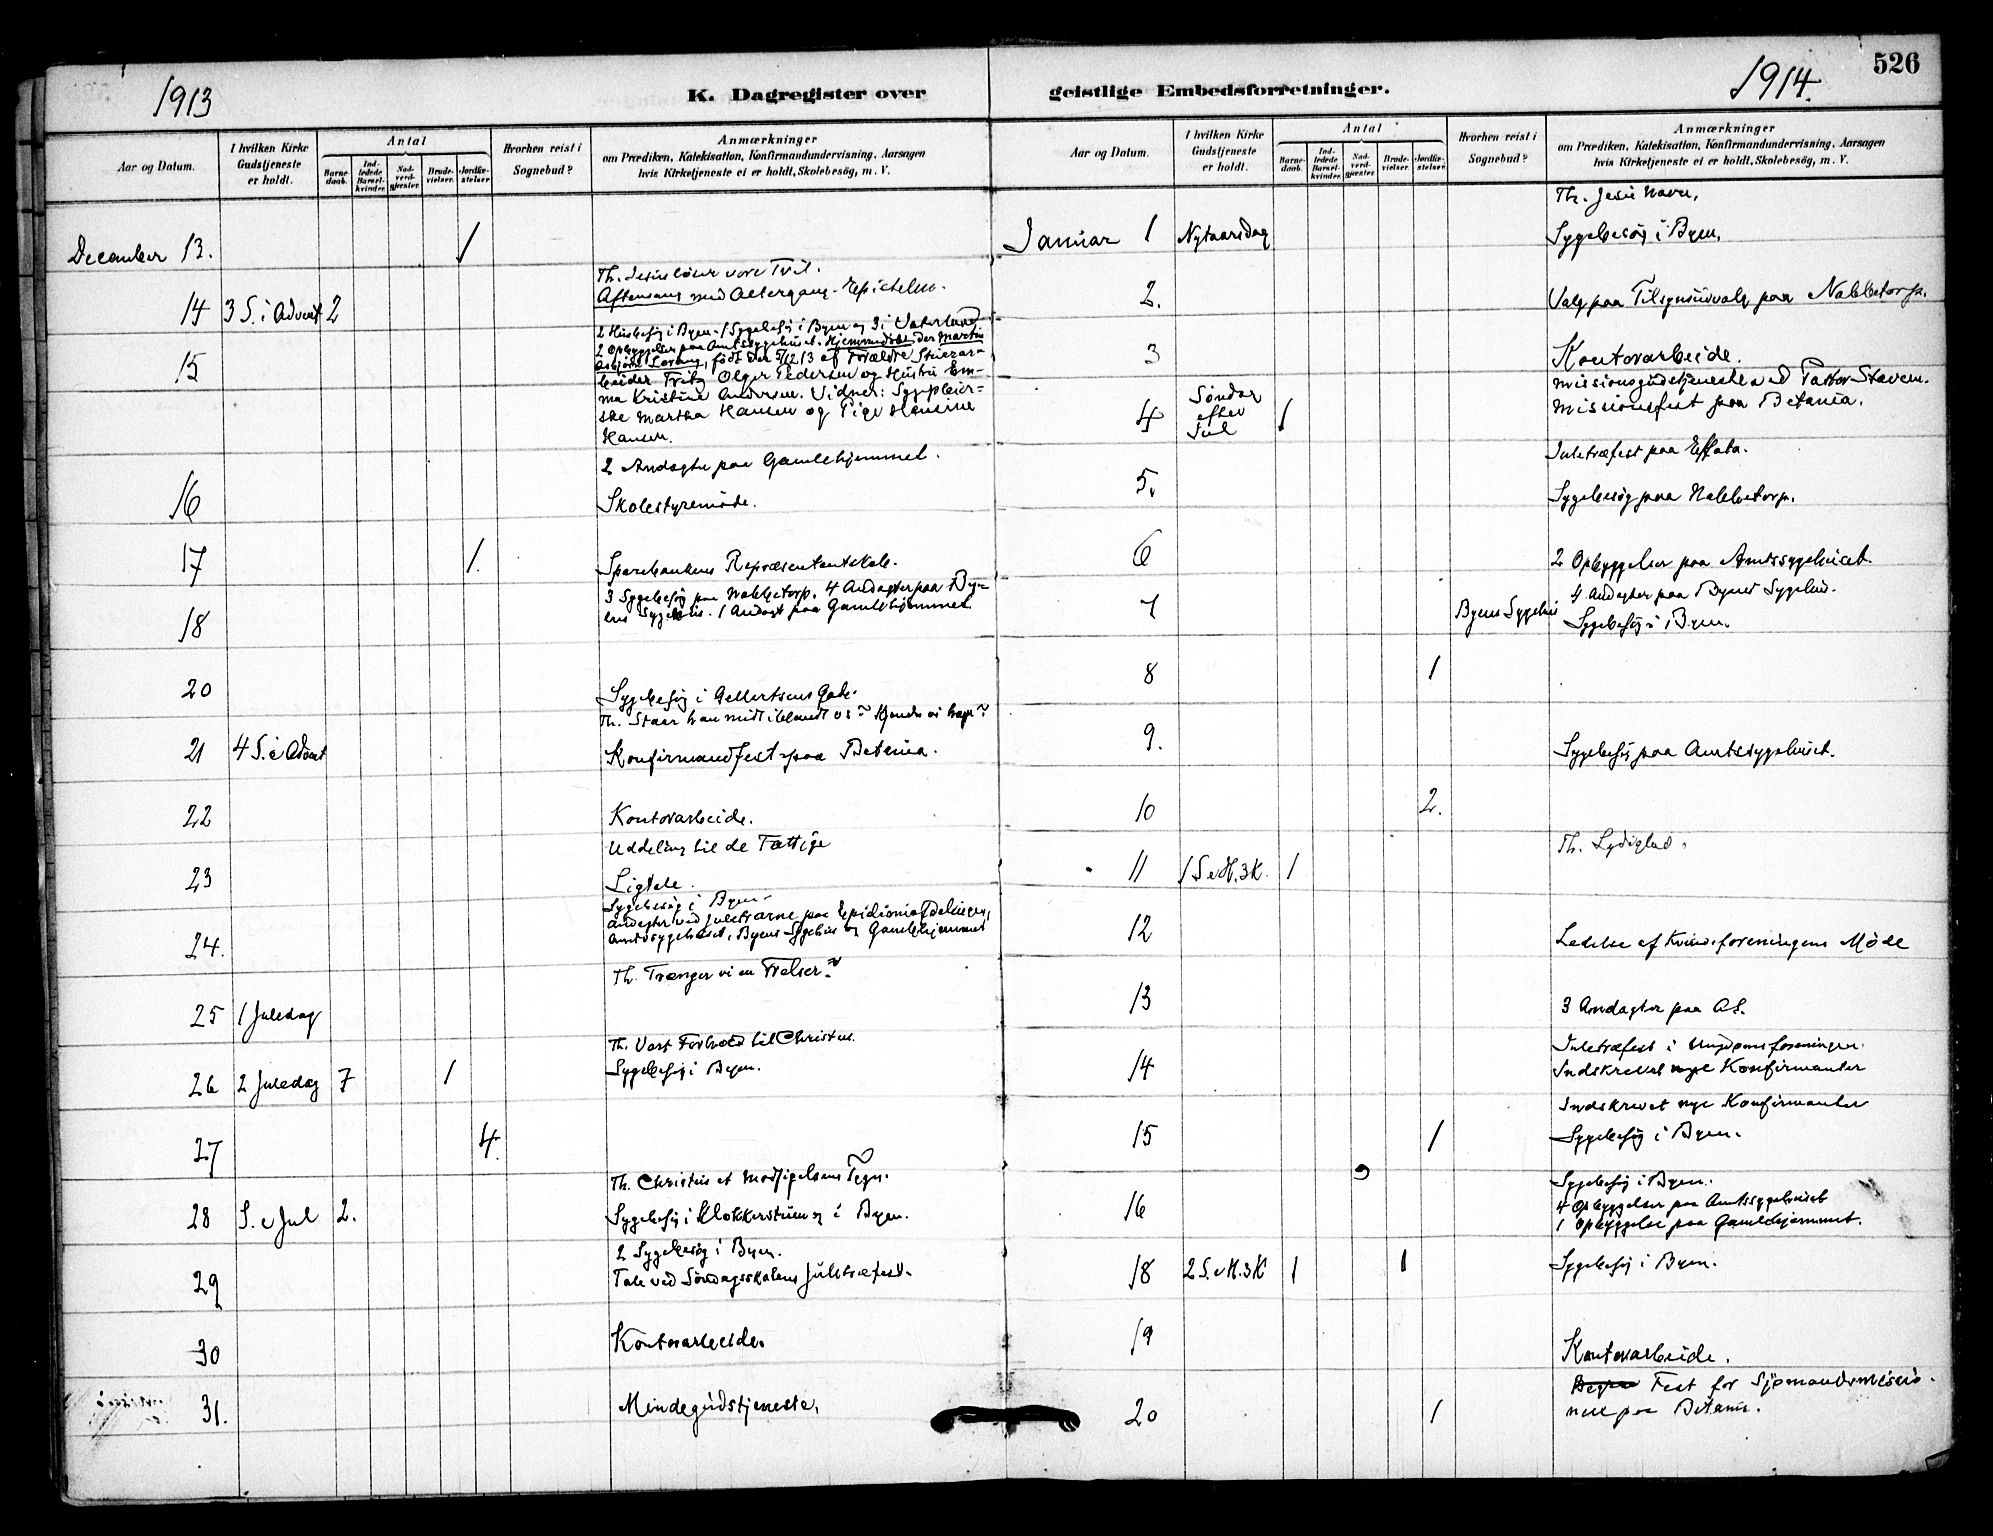 1913
K. Dagregister over
Aar og Datum.
I hvilken Kirke
Gudstjeneste
er holdt.
Antal
Barne-
daab.
Ind-
ledede
Barsel-
kvinder.
Nad-
verd-
gjester.
Brude-
vielser.
Jordfæ-
stelser.
Hvorhen reist i
Sognebud?
Anmærkninger
om Prædiken, Katekisation, Konfirmandundervisning, Aarsagen
hvis Kirketjeneste ei er holdt, Skolebesög, m. V.
December 13. 1
Th. Jesus løser vore Tvil.
Aftensang med Altergang - Epistelen.
14 3 S. i Advent 2
2 Husbesøg i Byen. 1 Sygebesøg i Byen og 3 i Vaterland
2 Opbyggelser paa Amtssygehuset. Hjemmedøbt der Martin
Asbjørn, født den 5/12 13 af Forældre
15
beider Fritz Olger Pedersen og Hustru Em-
ma Kristine Andersen. Vidner: Sygepleier-
ske Martha Hansen og Pige Hansine
Hansen.
2 Andagter paa Gamlehjemmet.
16 Skolestyremøde.
17 1. Sparebankens Repræsentantskab.
3 Sygebesøg paa Nabbetorp. 4 Andagter paa By-
ens Sygehus. 1 Andagt paa Gamlehjemmet
18
20 Sygebesøg i Gellertsens Gade.
Th. Staar han midt iblandt os? Kjender vi ham?
21 4 S. i Advent Konfirmandfest paa Betania.
22 Kontorarbeide.
Uddeling til de Fattige
23 Ligtale.
Sygebesøg i Byen.
Andagter ved Juletrærne paa Epidemiafdelingen,
Amtssygehuset, Byens Sygehus og Gamlehjemmet
24.
Th. Trænger vi en Frelser?
25 1 Juledag
Th. Vort Forhold til Christus.
26 2 Juledag 7 1 Sygebesøg i Byen.
27 4.
Th. Christus et Modsigelsens Tegn.
28 S. e Jul 2. Sygebesøg i Klokkerstuen og i Byen.
2 Sygebesøg i Byen.
29 Tale ved Søndagsskolens Juletræfest.
30 Kontorarbeide.
31. Mindegudstjeneste.
526
1914.
geistlige Embedsforretninger.
Aar og Datum.
I hvilken Kirke
Gudstjeneste
er holdt.
Antal
Barne-
daab.
Ind-
ledede
Barsel-
kvinder.
Nad-
verd-
gjester.
Brude-
vielser.
Jordfæ-
stelser.
Hvorhen reist i
Sognebud?
Anmærkninger
om Prædiken, Katekisation, Konfirmandundervisning, Aarsagen
hvis Kirketjeneste ei er holdt, Skolebesög, m. V.
Th. Jesu Navn.
Januar 1 Nytaarsdag Sygebesøg i Byen.
2. Valg paa Tilsynsudvalg paa Nabbetorp.
3 Kontorarbeide.
Missionsgudstjeneste ved Pastor Stavem.
4 Søndag efter Jul 1 Missionsfest paa Betania.
Juletræfest paa Effata.
5. Sygebesøg paa Nabbetorp.
6 2 Opbyggelser paa Amtssygehuset
4 Andagter paa Byens Sygehus.
7 Byens Sygehus Sygebesøg i Byen.
8 1
9. Sygebesøg paa Amtssygehuset.
10 2.
Th. Lydighed.
11 1 S e H. 3 K. 1
12 Ledelse af Kvindeforeningens Møde
13 3 Andagter paa AS.
Juletræfest i Ungdomsforeningen.
14 Indskrevet nye Konfirmanter
Indskrevet nye Konfirmanter
15 1 Sygebesøg i Byen.
Sygebesøg i Byen.
4 Opbyggelser paa Amtssygehuset
16 1 Opbyggelse paa Gamlehjemmet.
18 2 S. e H. 3 K 1 1 Sygebesøg i Byen.
19 Kontorarbeide.
Fest for Sjømandsmissio-
20 1 nen paa Betania.